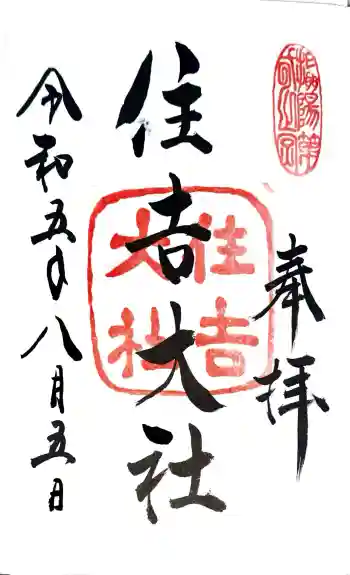 奉拝
住吉大社
住吉
大社
令和五年八月五日